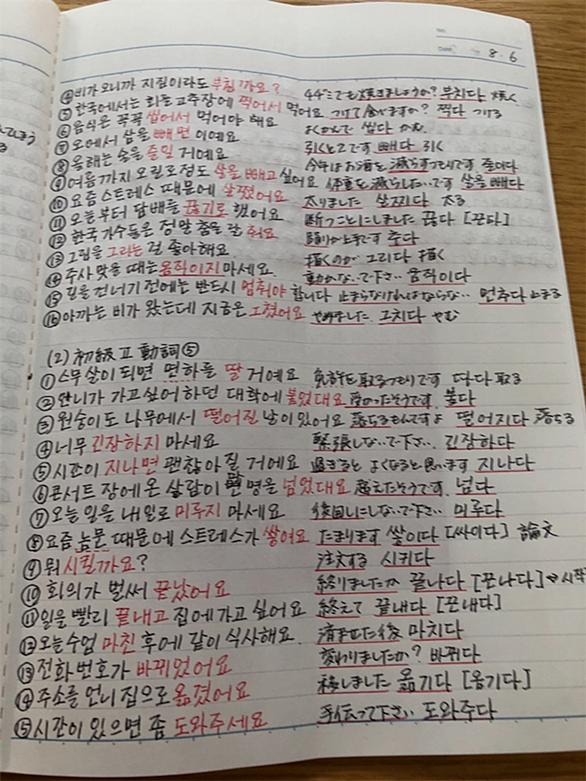 8.6
④비가 오니까 지짐이라도 부칠까요? 焼きましょうか? 부치다 焼く
⑤한국에서는 회를 고추장에 찍어서 먹어요 つけて食べますか? 찍다 つける
⑥음식은 꼭꼭 씹어서 먹어야 해요 よくかんで 씹다 かむ
⑦오에서 삼을 빼면 이예요 引くと2です 빼다 引く
⑧올해는 술을 줄일 거예요 今年はお酒を減らすつもりです 줄이다
⑨여름까지 오킬로정도 살을 빼고 싶어요 体重を減らしたいです 살을 빼다
⑩요즘 스트레스 때문에 살쪘어요 太りました 살찌다 太る
⑪오늘부터 담배를 끊기로 했어요 断つことにしました 끊다 [끈타]
⑫한국 가수들은 정말 춤을 잘 춰요 踊りが上手です 추다
⑬그림을 그리는 걸 좋아해요. 描くのが 그리다 描く
⑭주사 맞을 때는 움직이지 마세요. 動かないで下さい 움직이다
⑮길을 건너기 전에는 반드시 멈춰야 합니다 止まらなければならない 멈추다 止まる
⑯아까는 비가 왔는데 지금은 그쳤어요 やみました 그치다 やむ
(2) 初級Ⅱ 動詞⑤
①스무살이 되면 면허를 딸 거예요 免許を取るつもりです 따다 取る
②언니가 가고 싶어 하던 대학에 붙었대요 受かったそうです 붙다
③원숭이도 나무에서 떨어질 날이 있어요 落ちるもんですよ 떨어지다 落ちる
④너무 긴장하지 마세요 緊張しないで下さい. 긴장하다
⑤시간이 지나면 괜찮아질 거예요 過ぎると よくなると思います 지나다
⑥콘서트장에 온 사람이 명을 넘었대요 越えたそうです 넘다
⑦오늘 일을 내일로 미루지 마세요 後回しにしないで下さい 미루다
⑧요즘 논문 때문에 스트레스가 쌓여요 たまります 쌓이다 [싸이다] 論文
⑨뭐 시킬까요? 注文する 시키다
⑩회의가 벌써 끝났어요 終りましたか 끝나다 [끈나다]
⑪일을 빨리 끝내고 집에 가고 싶어요 終えて 끝내다 [끈내다]
⑫오늘 수업 마친 후에 같이 식사해요. 済ませた後 마치다
⑬전화번호가 바뀌었어요 変わりましたか? 바뀌다
⑭주소를 언니 집으로 옮겼어요 移しました 옮기다 [옴기다]
⑮시간이 있으면 좀 도와주세요 手伝って下さい 도와주다